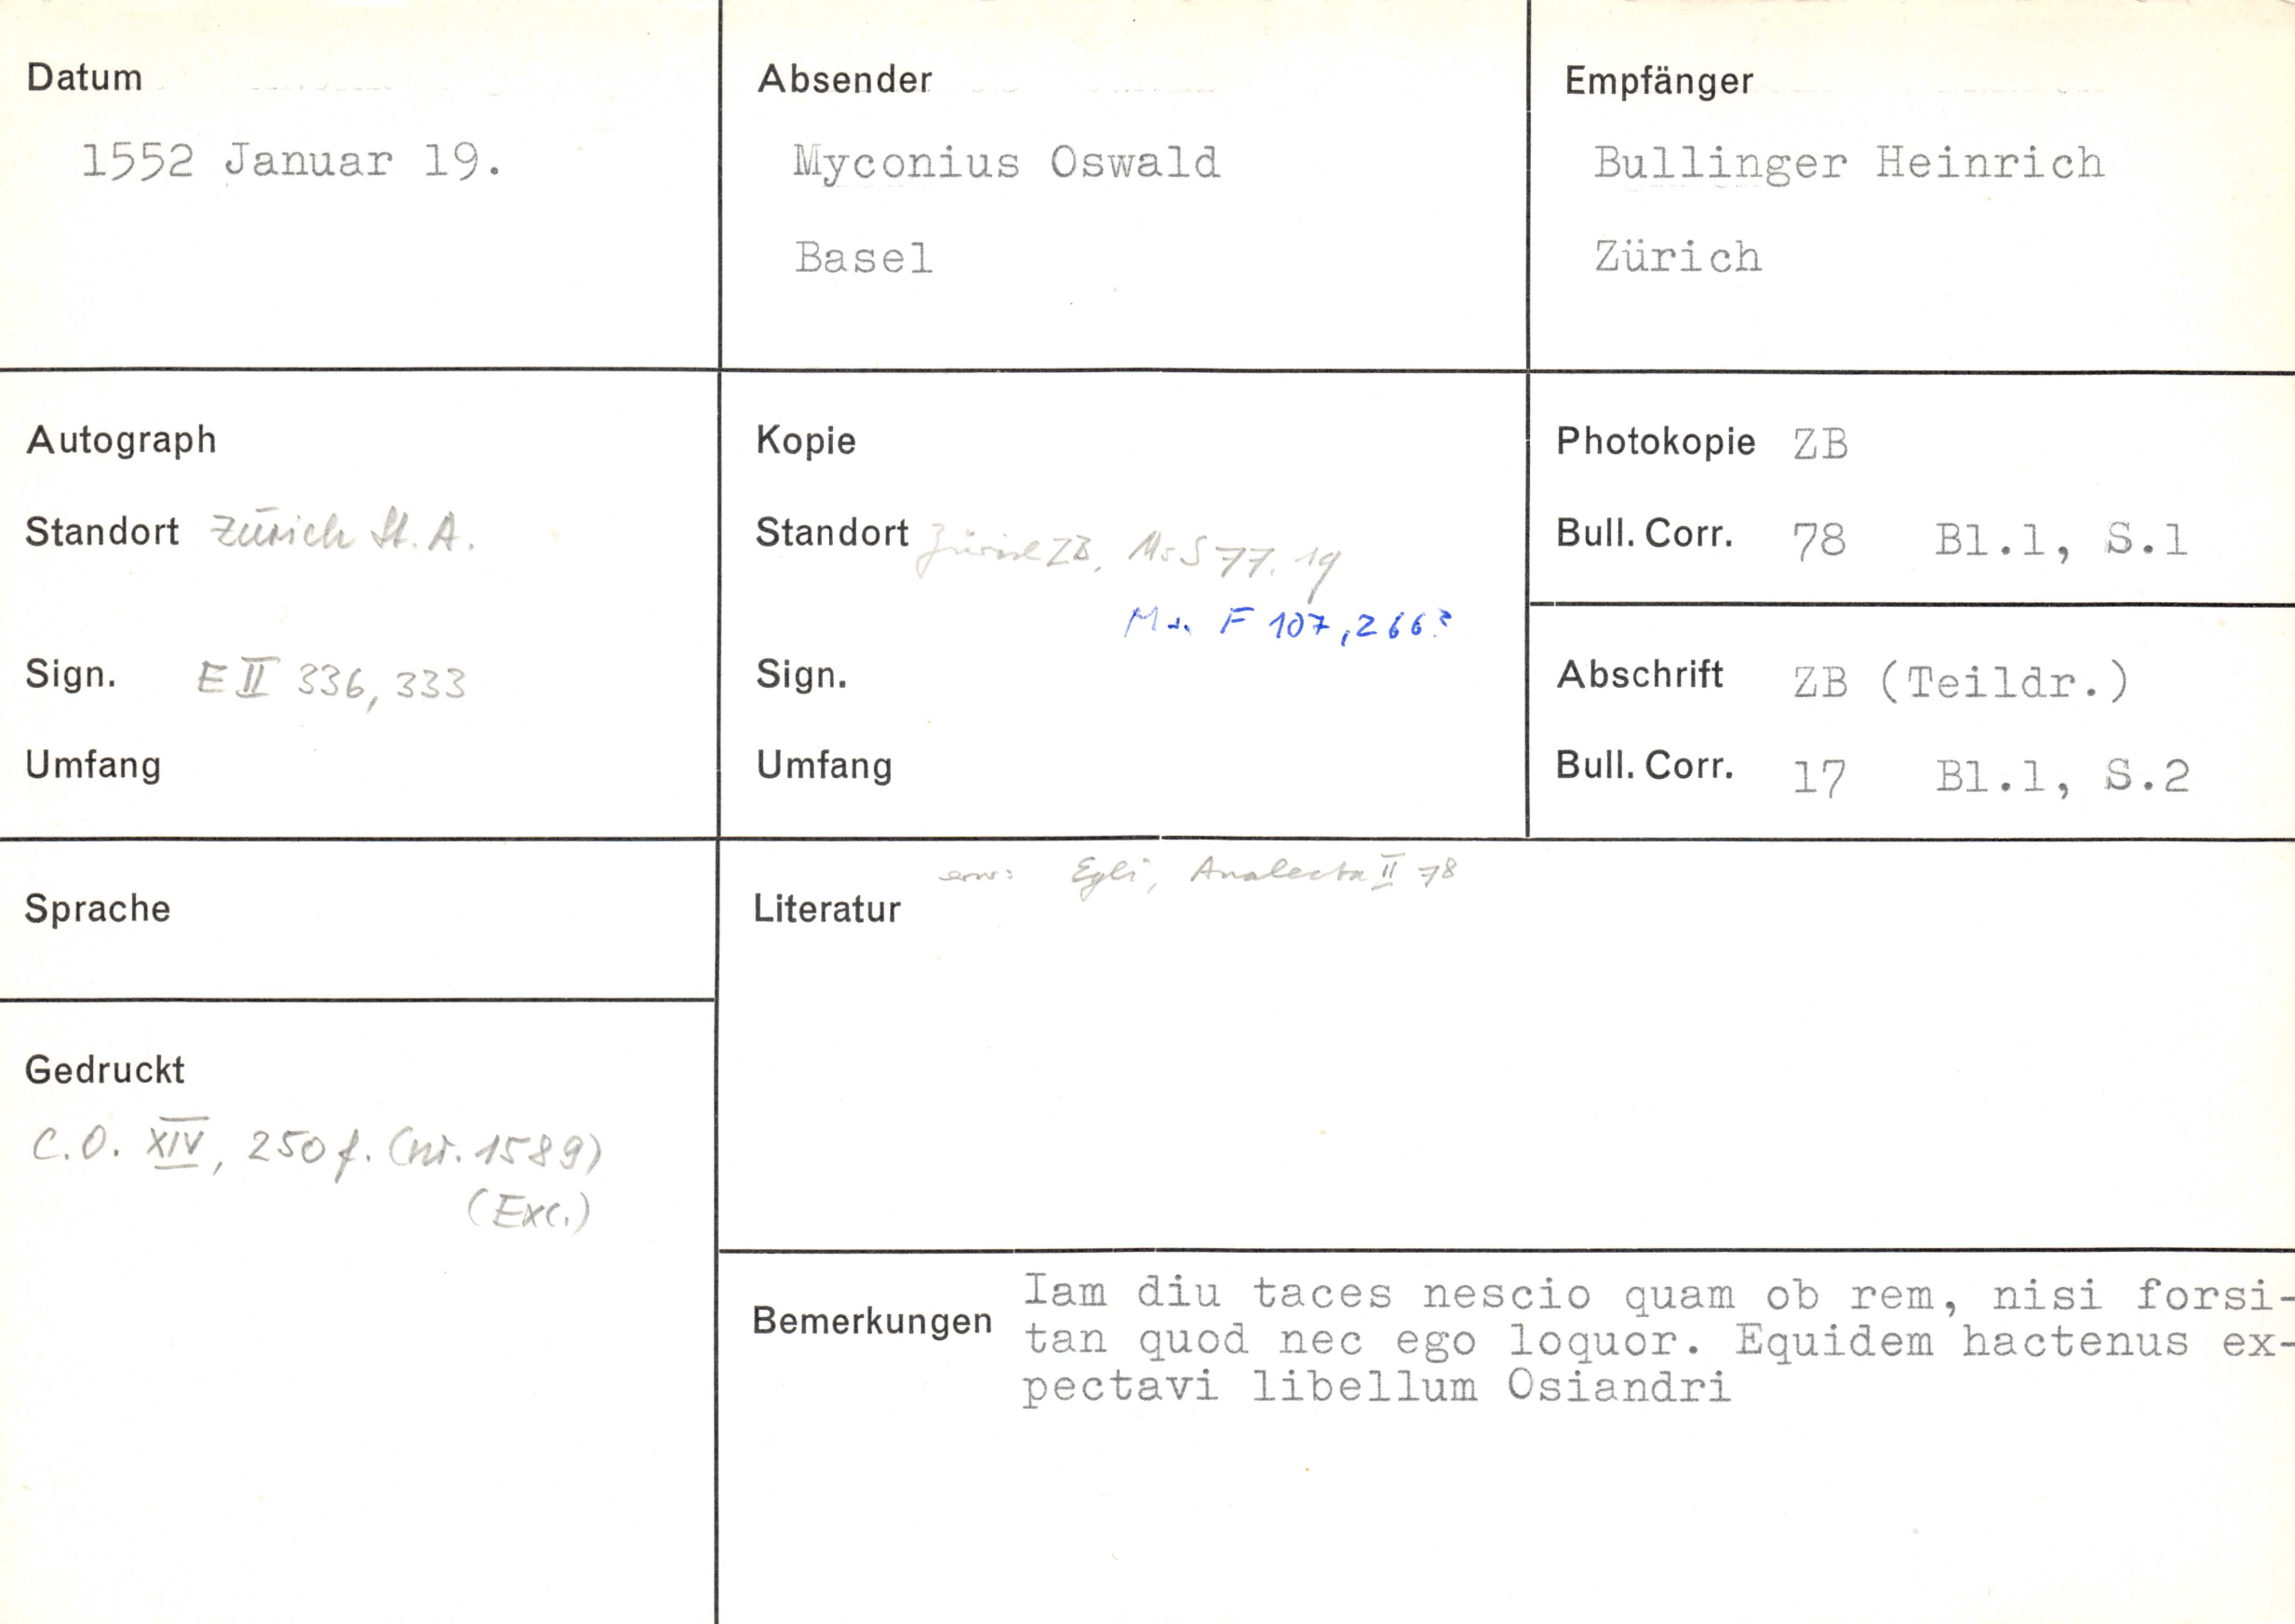 Datum
1552 Januar 19.
Absender
Myconius Oswald
Basel
Empfänger
Bullinger Heinrich
Zürich
Autograph
Standort Zürich St. A.
Sign. E II 336, 333
Umfang
Kopie
Standort Zürich ZB, Ms S 77. 19
Ms. F 107, 266?
Sign.
Umfang
Photokopie ZB
Bull. Corr. 78 Bl.1, S.1
Abschrift ZB (Teildr.)
Bull. Corr. 17 Bl.1, S.2
Sprache
Gedruckt
C.O. XIV, 250 f. (nr. 1589)
(Exc.)
erw: Egli, Analecta II 78
Literatur
Bemerkungen
Iam diu taces nescio quam ob rem, nisi forsi-
tan quod nec ego loquor. Equidem hactenus ex-
pectavi libellum Osiandri